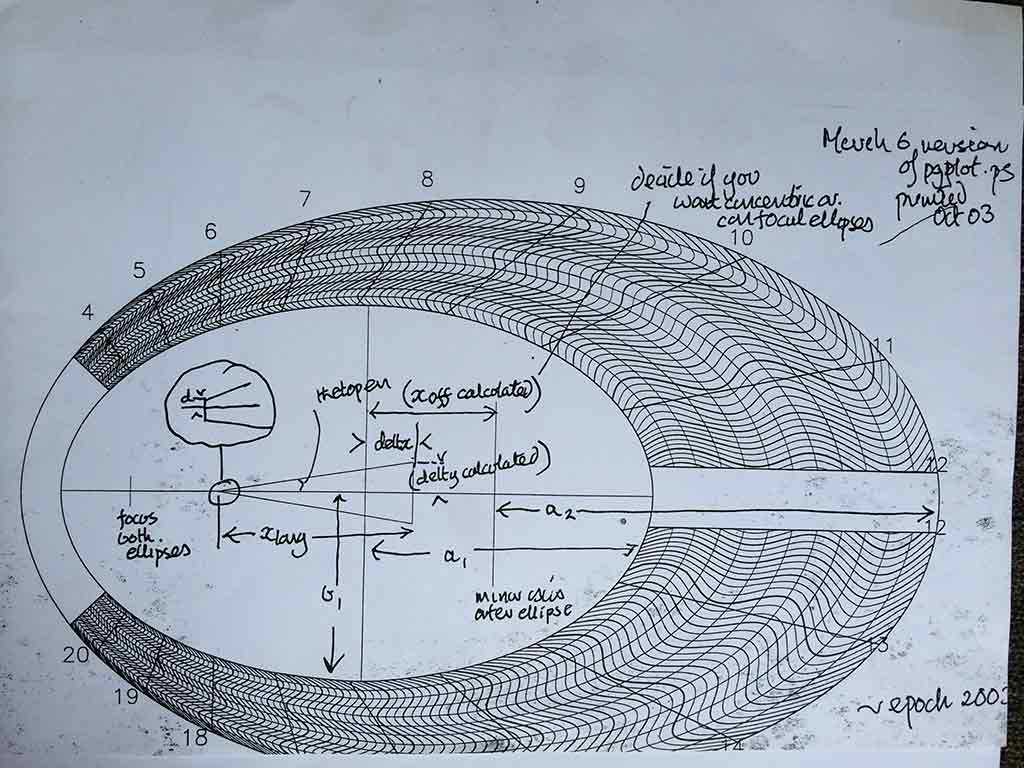 March 6 version
of pgplot.ps
printed
Oct 03
decide if you
want concentric or
confocal ellipses
4
5
6
7
8
9
10
11
12
12
13
14
18
19
20
thetopen
(xoff calculated)
deltx
(delty calculated)
focus
both
ellipses
xlarg
a₁
a₂
b₁
minor axis
outer ellipse
~ epoch 2003